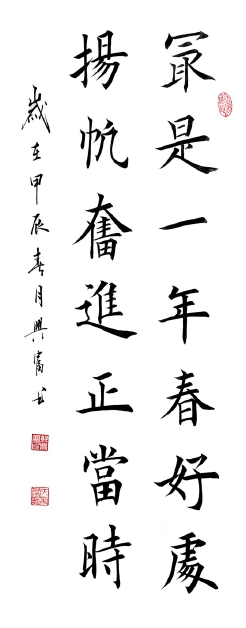 冣是一年春好處
揚帆奮進正當時
歲在甲辰春月興富書